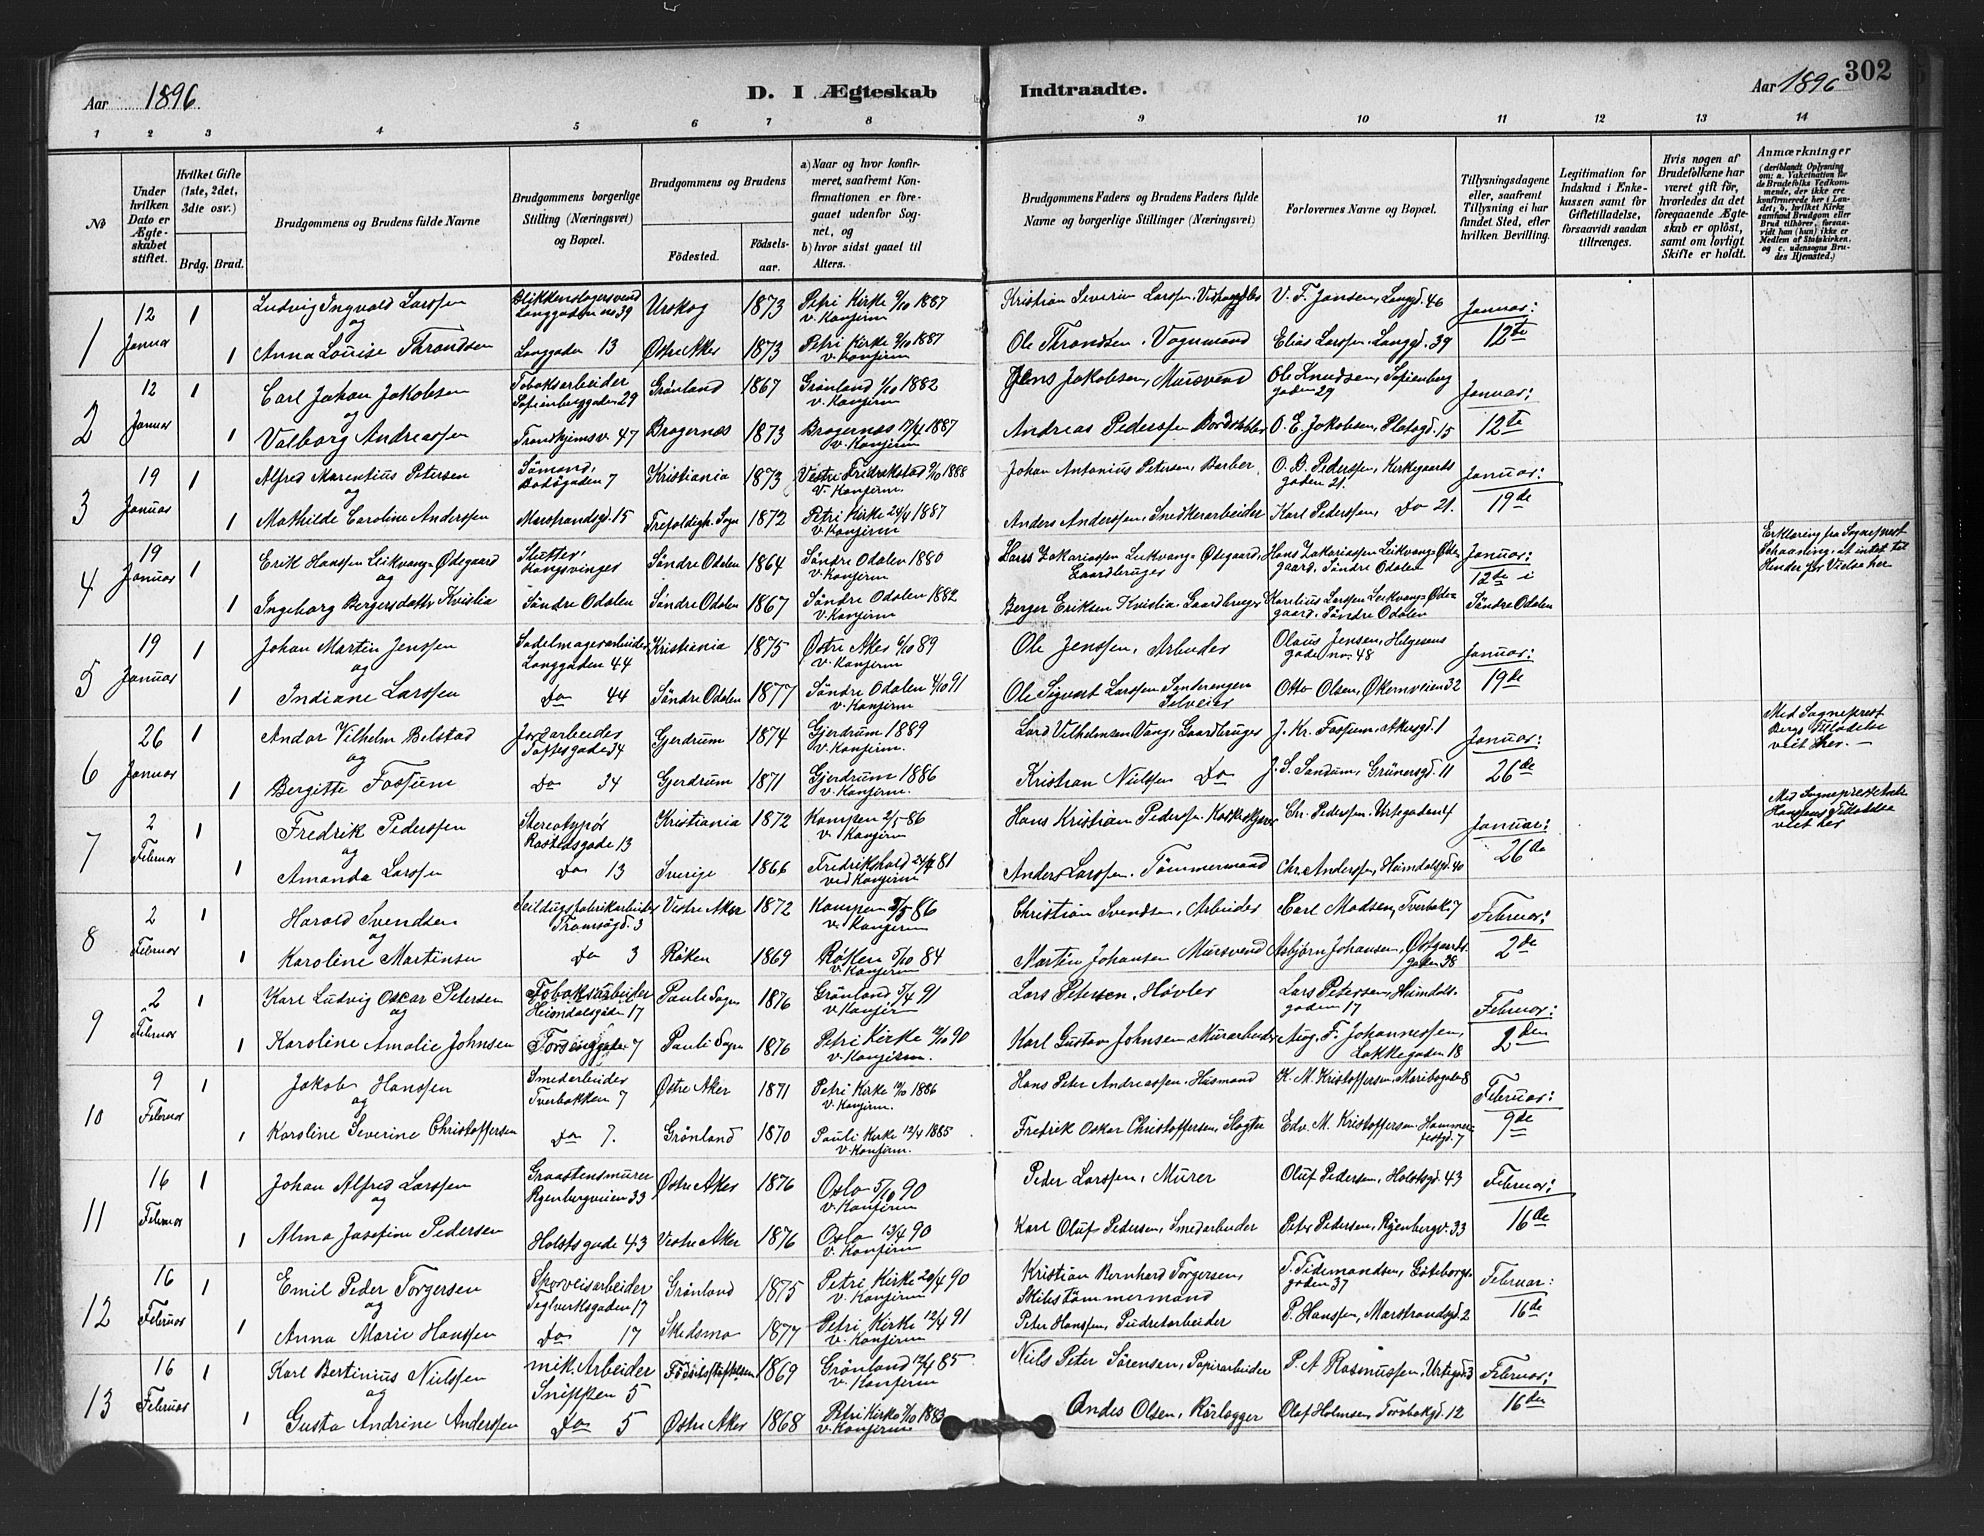 302
Aar 1896.
D. I Ægteskab Indtraadte.
Aar 1896
1 2 3 4 5 6 7 8 9 10 11 12 13 14
No
Under hvilken Dato er Ægteskabet stiftet.
Hvilket Gifte (1ste, 2det, 3die osv.)
Brdg. Brud.
Brudgommens og Brudens fulde Navne
Brudgommens borgerlige Stilling (Næringsvei) og Bopæl.
Brudgommens og Brudens
Fødested.
Fødselsaar.
a) Naar og hvor konfirmeret, saafremt Konfirmationen er foregaaet udenfor Sognet, og b) hvor sidst gaaet til Alters.
Brudgommens Faders og Brudens Faders fulde Navne og borgerlige Stillinger (Næringsvei)
Forlovernes Navne og Bopæl.
Tillysningsdagene eller, saafremt Tillysning ei har fundet Sted, efter hvilken Bevilling.
Legitimation for Indskud i Enkekassen samt for Giftetilladelse, forsaavidt saadan tiltrænges.
Hvis nogen af Brudefolkene har været gift før, hvorledes da det foregaaende Ægteskab er opløst, samt om lovligt Skifte er holdt.
Anmærkninger (deriblandt Oplysning om: a. Vakcination for de Brudefolks Vedkommende, der ikke ere konfirmerede her i Landet; b. hvilket Kirkesamfund Brudgom eller Brud tilhører, forsaavidt han (hun) ikke er Medlem af Statskirken, og c. udensogns Brudes Hjemsted.)
1 12 Januar 1 Ludvig Ingvald Larssen Blikkenslagersvend Langgaden no 39 Urskog 1873 Petri Kirke 9/10 1887 v. Konfirm Kristian Severin Larssen, V. F. Jansen, Langgd. 46 Januar: 12te
og
1 Anna Louise Throndsen Langgaden 13 Østre Aker 1873 Petri Kirke 9/10 1887 v. Konfirm Ole Throndsen, Vognmand Elias Larssen, Langgd. 39
2 12 Januar 1 Carl Johan Jakobsen Tobaksarbeider Sofienberggaden 29 Grønland 1867 Grønland 1/10 1882 v. Konfirm Jens Jakobsen, Mursvend Ole Knudsen, Sofienberggaden 29 Januar: 12te
og
1 Valborg Andreassen Trondhjemsv. 47 Bragernæs 1873 Bragernæs 17/4 1887 v. Konfirm Andreas Pederssen O. E. Jakobsen, Platogd. 15
3 19 Januar 1 Alfred Marentius Petersen Sömand, Bodögaden 7 Kristiania 1873 Vestre Fredrikstad 7/10 1888 v. Konfirm. Johan Antonius Petersen, Barber O. B. Pederssen, Kirkegaardsgaden 21. Januar: 19de
og
1 Mathilde Caroline Anderssen Marstrandsgd. 15 Trefoldigh. Sogn 1872 Petri Kirke 24/4 1887 v. Konfirm Anders Anderssen, Snedkerarbeider Karl Pederssen, Do 21.
4 19 Januar 1 Erik Hanssen Leikvang-Ødegaard Slutter, Kongsvinger Søndre Odalen 1864 Søndre Odalen 1880 v. Konfirm Lars Zakariassen Leikvang-Ødegaard, Gaardbruger Hans Zakariassen Leikvang-Ødegaard, Søndre Odalen Januar: 12te i Søndre Odalen Erklæring fra Sogneprest Schaaning, at intet til Hinder for Vielse her
og
1 Ingeborg Bergersdatter Kvislia Søndre Odalen Søndre Odalen 1867 Søndre Odalen 1882 v. Konfirm Berger Eriksen Kvislia, Gaardbruger Karelius Larssen Leikvang-Ødegaard, Søndre Odalen
5 19 Januar 1 Johan Martin Jenssen Sadelmagerarbeider Langgaden 44 Kristiania 1875 Østre Aker 6/10 89 v. Konfirm Ole Jenssen, Arbeider Olaus Jensen, Helgesens gade no. 48 Januar: 19de
og
1 Indiane Larssen Do 44 Søndre Odalen 1877 Søndre Odalen 4/10 91 v. Konfirm Ole Sigvart Larssen Sanderengen Selveier Otto Olsen, Økernveien 32
6 26 Januar 1 Andor Vilhelm Belstad Jordarbeider Toftesgade 34 Gjerdrum 1874 Gjerdrum 1889 v. Konfirm. Lars Vilhelmsen Vang, Gaardbruger J. Kr. Fossum, Akersgd. 1 Januar: 26de Med Sogneprest Bergs Tilladelse viet her. —
og
1 Bergitte Fossum Do 34 Gjerdrum 1871 Gjerdrum 1886 v. Konfirm. Kristian Nielssen Do J. S. Sandum, Grünersgd. 11
7 2 Februar 1 Fredrik Pederssen Stereotypør Rostedsgade 13 Kristiania 1872 Kampen 2/5 86 v. Konfirm Hans Kristian Pederssen Chr. Pederssen, Urtegaden 4 Januar: 26de Med Sogneprest Hanssens Tilladelse viet her
og
1 Amanda Larssen Do 13 Sverige 1866 Fredrikshald 24/4 81 ved Konfirm Anders Larssen, Tømmermand Chr. Anderssen, Heimdalsgd. 40
8 2 Februar 1 Harald Svendsen Seildugsfabrikarbeider Tromsøgd. 3 Vestre Aker 1872 Kampen 2/5 86 v. Konfirm Christian Svendsen, Arbeider Carl Madsen, Tverbak. 7 Februar: 2de
og
1 Karoline Martinsen Do 3 Røken 1869 Røken 5/10 84 v. Konfirm Martin Johansen Mursvend Asbjørn Johansen, Østgaardsgaden 38
9 2 Februar 1 Karl Ludvig Oscar Petersen Tobaksarbeider Heimdalsgaden 17 Pauli Sogn 1876 Grønland 5/4 91 v. Konfirm Lars Petersen, Høvler Lars Petersen, Heimdalsgaden 17 Februar: 2den
og
1 Karoline Amalie Johnsen 7 Pauli Sogn 1876 Petri Kirke 12/10 90 v. Konfirm. Karl Gustav Johnsen Murarbeider Aug. F. Johannessen, Lakkegaden 18
10 9 Februar 1 Jakob Hanssen Smedarbeider Tverbakken 7 Østre Aker 1871 Petri Kirke 10/10 1886 v. Konfirm. Hans Peter Andreassen, Husmand K. M. Kristoffersen, Maribogaden 8 Februar: 9de
og
1 Karoline Severine Christoffersen Do 7. Grønland 1870 Pauli Kirke 12/4 1885 v. Konfirm. Fredrik Oskar Christoffersen, Slagter Edv. M. Kristoffersen Hammerfestgd. 7
11 16 Februar 1 Johan Alfred Larssen Graastensmurer Ryenbergveien 33 Østre Aker 1876 Oslo 5/10 90 v. Konfirm Peder Larssen, Murer Oluf Pedersen, Holstsgd. 43 Februar: 16de
og
1 Alma Josefine Pedersen Holstsgade 43 Vestre Aker 1876 Oslo 13/4 90 v. Konfirm Karl Oluf Pedersen, Smedarbeider Peter Pedersen, Ryenbergv. 33
12 16 Februar 1 Emil Peder Torgersen Sporveisarbeider Teglverksgaden 17 Grønland 1875 Petri Kirke 20/4 90 v. Konfirm Kristian Bernhard Torgersen, Skibstømmermand T. Tidemandsen, Göteborggaden 37 Februar: 16de
og
1 Anna Marie Hanssen Do 17 Skedsmo 1877 Petri Kirke 12/4 91 v. Konfirm Peter Hanssen, Pudretarbeider P. Hanssen, Marstrandsgd. 2
13 16 Februar 1 Karl Bertinius Nielssen mek. Arbeider Snippen 5 Fødselsstiftelsen 1869 Grønland 12/4 85 v. Konfirm Niels Peter Sørensen, Papirarbeider P. A. Rasmussen, Urtegd. 3 Februar: 16de
og
1 Gusta Andrine Anderssen Do 5 Østre Aker 1868 Petri Kirke 7/10 1883 v. Konfirm Andes Olsen, Rørlægger Olaf Holmsen, Torvbakgd. 12